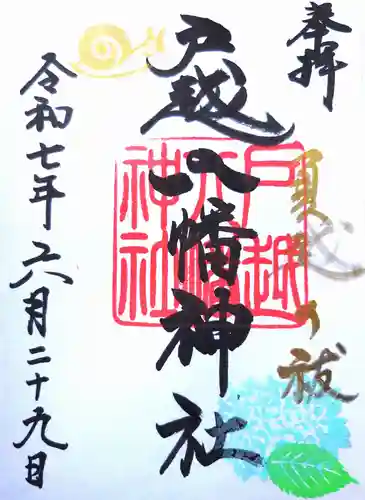 奉拝
戸越八幡神社
夏越の祓
戸越八幡神社
令和七年六月二十九日